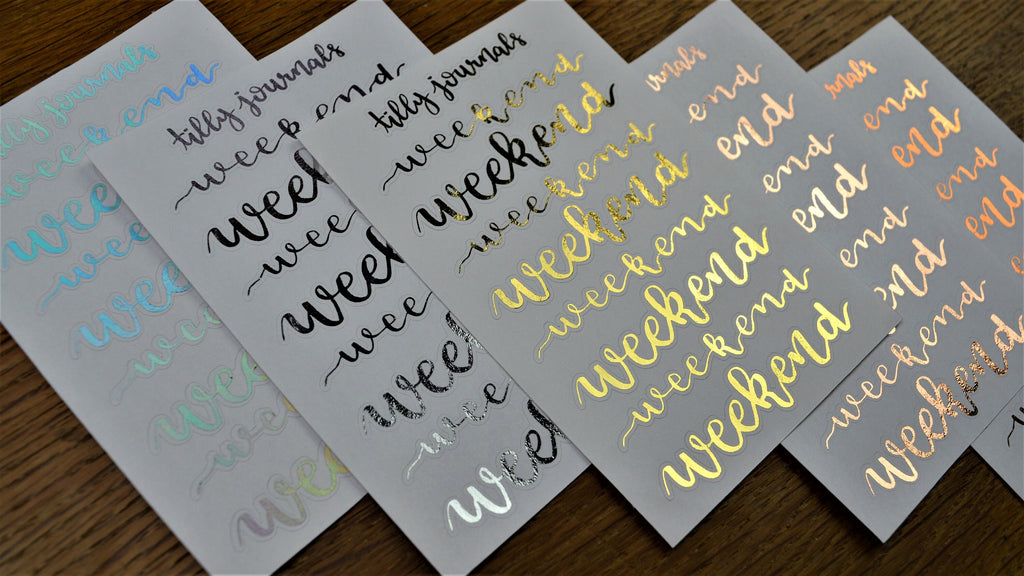 tilly journals
weekend
week
wee
week
wee
week
wee
wee
tilly journals
weekend
week
wee
week
wee
week
wee
wee
tilly journals
weekend
weekend
weekend
weekend
weekend
weekend
weekend
weekend
rnals
end
end
end
end
end
end
weekend
weekend
rnals
end
end
end
end